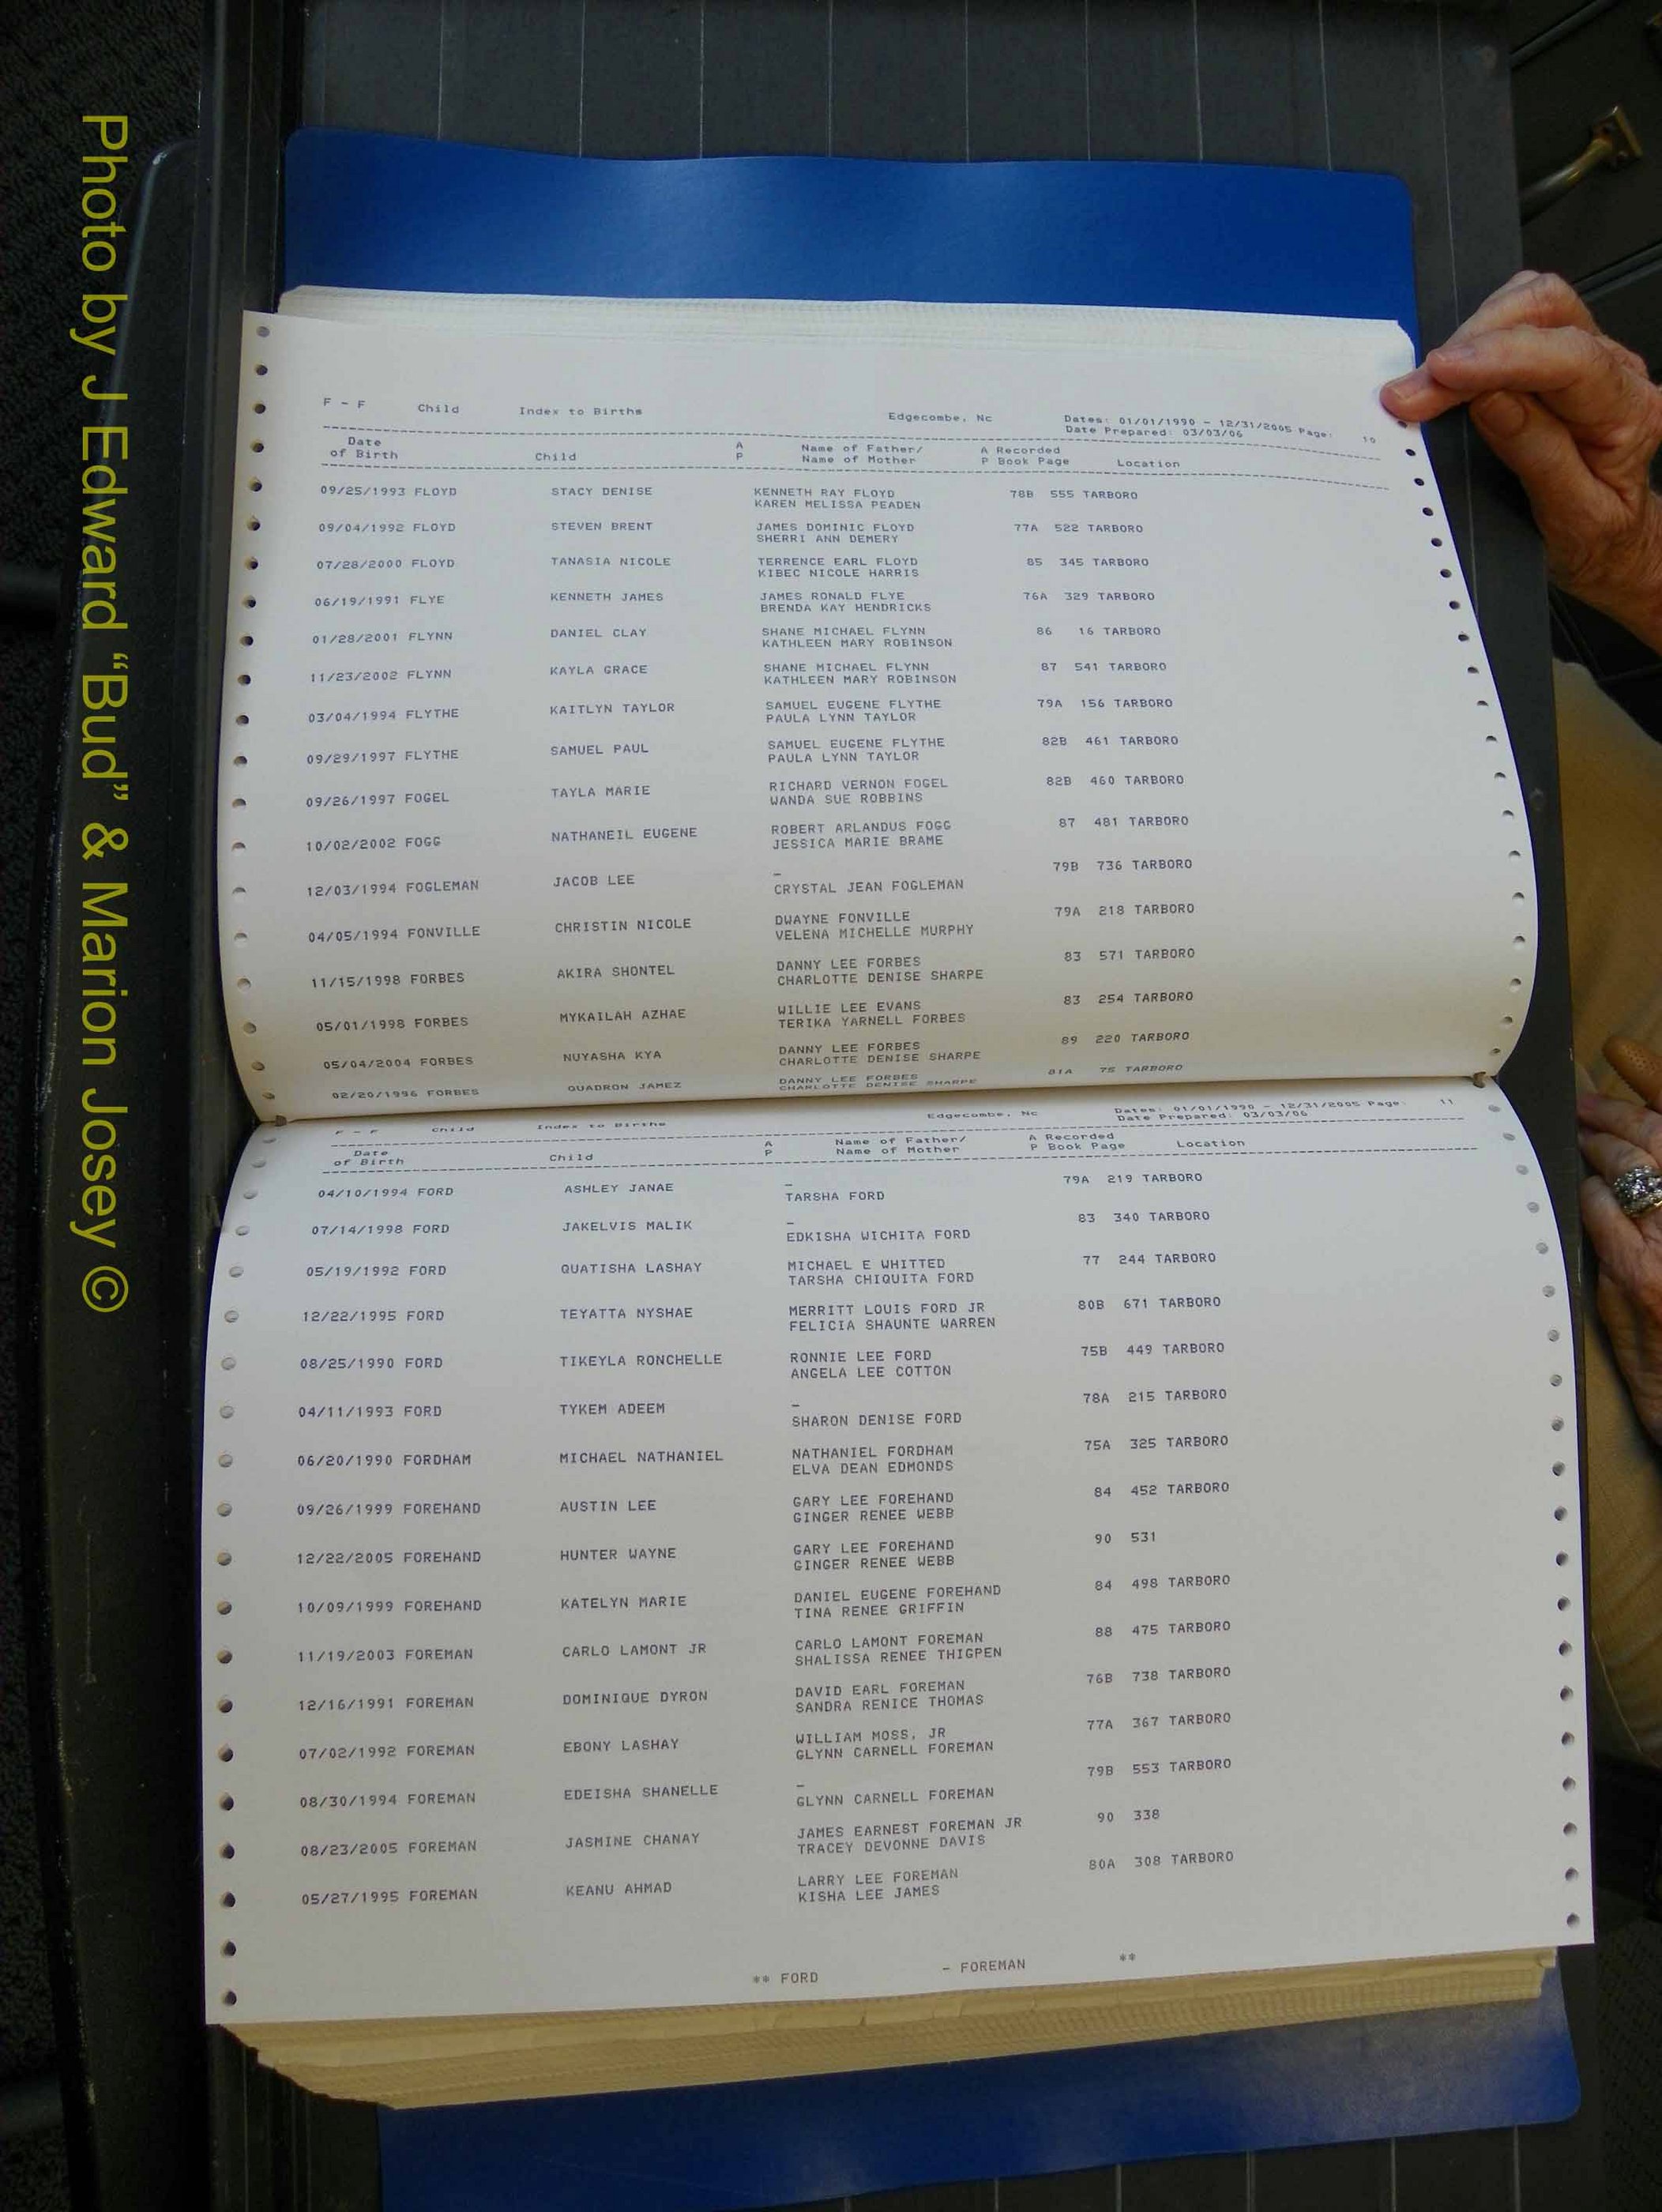 F - F Child Index to Births Edgecombe, Nc Dates: 01/01/1990 - 12/31/2005 Page: 10
Date Prepared: 03/03/06
Date A Name of Father/ A Recorded
of Birth Child P Name of Mother P Book Page Location
09/25/1993 FLOYD STACY DENISE KENNETH RAY FLOYD 78B 555 TARBORO
KAREN MELISSA PEADEN
09/04/1992 FLOYD STEVEN BRENT JAMES DOMINIC FLOYD 77A 522 TARBORO
SHERRI ANN DEMERY
07/28/2000 FLOYD TANASIA NICOLE TERRENCE EARL FLOYD 85 345 TARBORO
KIBEC NICOLE HARRIS
06/19/1991 FLYE KENNETH JAMES JAMES RONALD FLYE 76A 329 TARBORO
BRENDA KAY HENDRICKS
01/28/2001 FLYNN DANIEL CLAY SHANE MICHAEL FLYNN 86 16 TARBORO
KATHLEEN MARY ROBINSON
11/23/2002 FLYNN KAYLA GRACE SHANE MICHAEL FLYNN 87 541 TARBORO
KATHLEEN MARY ROBINSON
03/04/1994 FLYTHE KAITLYN TAYLOR SAMUEL EUGENE FLYTHE 79A 156 TARBORO
PAULA LYNN TAYLOR
09/29/1997 FLYTHE SAMUEL PAUL SAMUEL EUGENE FLYTHE 82B 461 TARBORO
PAULA LYNN TAYLOR
09/26/1997 FOGEL TAYLA MARIE RICHARD VERNON FOGEL 82B 460 TARBORO
WANDA SUE ROBBINS
10/02/2002 FOGG NATHANEIL EUGENE ROBERT ARLANDUS FOGG 87 481 TARBORO
JESSICA MARIE BRAME
12/03/1994 FOGLEMAN JACOB LEE – 79B 736 TARBORO
CRYSTAL JEAN FOGLEMAN
04/05/1994 FONVILLE CHRISTIN NICOLE DWAYNE FONVILLE 79A 218 TARBORO
VELENA MICHELLE MURPHY
11/15/1998 FORBES AKIRA SHONTEL DANNY LEE FORBES 83 571 TARBORO
CHARLOTTE DENISE SHARPE
05/01/1998 FORBES MYKAILAH AZHAE WILLIE LEE EVANS 83 254 TARBORO
TERIKA YARNELL FORBES
05/04/2004 FORBES NUYASHA KYA DANNY LEE FORBES 89 220 TARBORO
CHARLOTTE DENISE SHARPE
02/20/1996 FORBES QUADRON JAMEZ DANNY LEE FORBES 81A 75 TARBORO
CHARLOTTE DENISE SHARPE
F - F Child Index to Births Edgecombe, Nc Dates: 01/01/1990 - 12/31/2005 Page: 11
Date Prepared: 03/03/06
Date A Name of Father/ A Recorded
of Birth Child P Name of Mother P Book Page Location
04/10/1994 FORD ASHLEY JANAE – 79A 219 TARBORO
TARSHA FORD
07/14/1998 FORD JAKELVIS MALIK – 83 340 TARBORO
EDKISHA WICHITA FORD
05/19/1992 FORD QUATISHA LASHAY MICHAEL E WHITTED 77 244 TARBORO
TARSHA CHIQUITA FORD
12/22/1995 FORD TEYATTA NYSHAE MERRITT LOUIS FORD JR 80B 671 TARBORO
FELICIA SHAUNTE WARREN
08/25/1990 FORD TIKEYLA RONCHELLE RONNIE LEE FORD 75B 449 TARBORO
ANGELA LEE COTTON
04/11/1993 FORD TYKEM ADEEM – 78A 215 TARBORO
SHARON DENISE FORD
06/20/1990 FORDHAM MICHAEL NATHANIEL NATHANIEL FORDHAM 75A 325 TARBORO
ELVA DEAN EDMONDS
09/26/1999 FOREHAND AUSTIN LEE GARY LEE FOREHAND 84 452 TARBORO
GINGER RENEE WEBB
12/22/2005 FOREHAND HUNTER WAYNE GARY LEE FOREHAND 90 531
GINGER RENEE WEBB
10/09/1999 FOREHAND KATELYN MARIE DANIEL EUGENE FOREHAND 84 498 TARBORO
TINA RENEE GRIFFIN
11/19/2003 FOREMAN CARLO LAMONT JR CARLO LAMONT FOREMAN 88 475 TARBORO
SHALISSA RENEE THIGPEN
12/16/1991 FOREMAN DOMINIQUE DYRON DAVID EARL FOREMAN 76B 738 TARBORO
SANDRA RENICE THOMAS
07/02/1992 FOREMAN EBONY LASHAY WILLIAM MOSS, JR 77A 367 TARBORO
GLYNN CARNELL FOREMAN
08/30/1994 FOREMAN EDEISHA SHANELLE – 79B 553 TARBORO
GLYNN CARNELL FOREMAN
08/23/2005 FOREMAN JASMINE CHANAY JAMES EARNEST FOREMAN JR 90 338
TRACEY DEVONNE DAVIS
05/27/1995 FOREMAN KEANU AHMAD LARRY LEE FOREMAN 80A 308 TARBORO
KISHA LEE JAMES
** FORD - FOREMAN **
Photo by J Edward “Bud” & Marion Josey ©